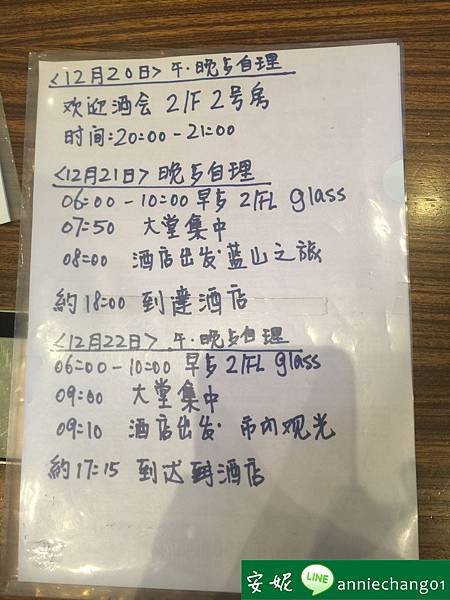 <12月20日> 午.晚歺自理
欢迎酒会 2/F 2号房
时间:20:00-21:00
<12月21日> 晚歺自理
06:00-10:00 早歺 2/FL glass
07:50 大堂集中
08:00 酒店出发.蓝山之旅
約18:00 到達酒店
<12月22日> 午.晚歺自理
06:00-10:00 早歺 2/FL glass
09:00 大堂集中
09:10 酒店出发. 市内观光
約17:15 到达到酒店
安妮 LINE anniechang01